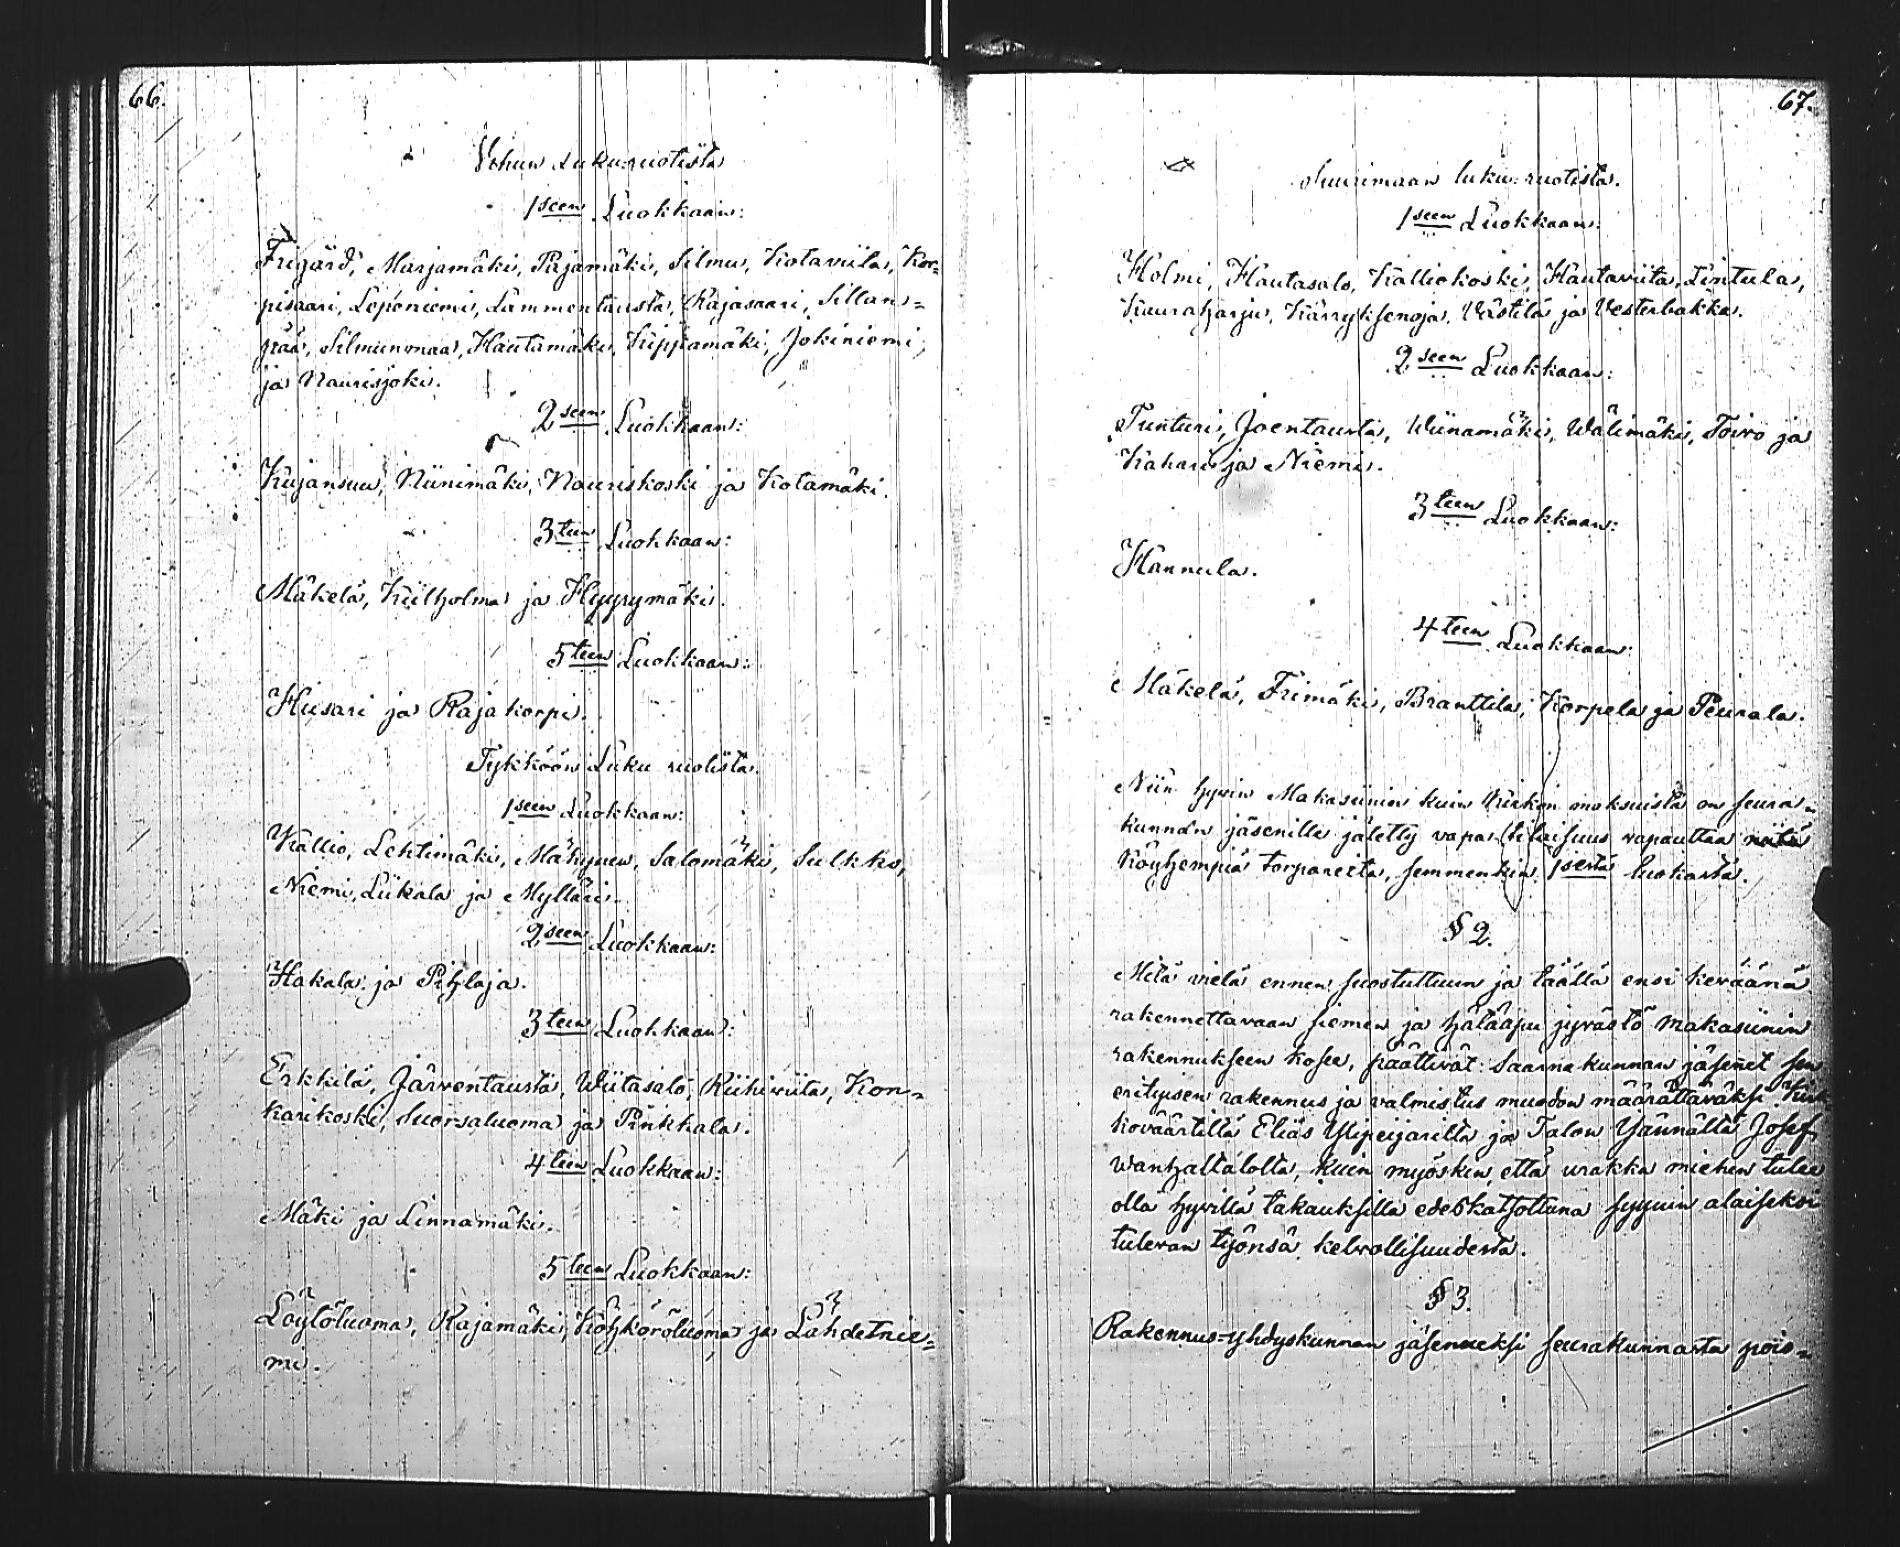 66.
Vohun Lukuruotista
1seen Luokkaan:
Frigård, Marjamäki, Pajamäki, Silmu, Kotaviita, Kor=
pisaari, Lepöniemi, Lammentausta, Rajasaari, Sillan=
pää, Silmunmaa, Hautamäki, Kippamäki, Jokiniemi,
ja Naurisjoki.
2seen Luokkaan:
Kujansuu, Niinimäki, Nauriskoski ja Kotamäki.
3teen Luokkaan:
Mäkelä, Kiilholma ja Hyyrymäki.
5teen Luokkaan:
Husari ja Rajakorpi.
Tykköön Luku ruotista.
1seen Luokkaan:
Kallio, Lehtimäki, Mäkynen, Salomäki, Sulkko,
Niemi, Liikala ja Mylläri.
2seen Luokkaan:
Hakala ja Pihlaja.
3teen Luokkaan:
Erkkilä, Järventausta, Wiitasalo, Riihiviita, Kon=
karikoski, Suorsaluoma ja Pinkkala.
4teen Luokkaan:
Mäki ja Linnamäki.
5teen Luokkaan:
Löytöluoma, Rajamäki, Köhköröluoma ja Lähdetnie=
mi.
67.
Suurimaan luku ruotista.
1seen Luokkaan:
Holmi, Hautasalo, Kalliokoski, Hautaviita, Lintula,
Kauraharju, Kärryksenoja, Västilä ja Vesterbakka.
2seen Luokkaan:
Tunturi, Joentausta, Wiinamäki, Wälimäki, Toivo ja
Kahari ja Niemi.
3teen Luokkaan:
Hannula.
4teen Luokkaan:
Mäkelä, Frimäki, Branttila, Korpela ja Peurala.
Niin hyvin Makasiinin kuin Kirkon maksuista on seura=
kunnan jäsenille jätetty vapa tilaisuus vapauttaa niitä
Köyhempiä torpareita, semmenkin 1sestä luokasta.
§ 2.
Mitä vielä ennen suostuttuun ja täällä ensi keväänä
rakennettavaan siemen ja hätäapu jyvästö makasiinin
rakennukseen kosee, päättivät Saarnakunnan jäsenet sen
erityisen rakennus ja valmistus muodon määrättäväksi Kirk
kovääriltä Elias Ylipeijarilta ja Talon Isännältä Josef
Wanhaltatalolta, kuin myöskin, että urakka miehen tulee
olla hyvillä takauksilla edeskatsottuna syyniin alaiseksi
tulevan työnsä kelvollisuudesta.
§ 3.
Rakennus=yhdyskunnan jäseneksi seurakunnasta pois=